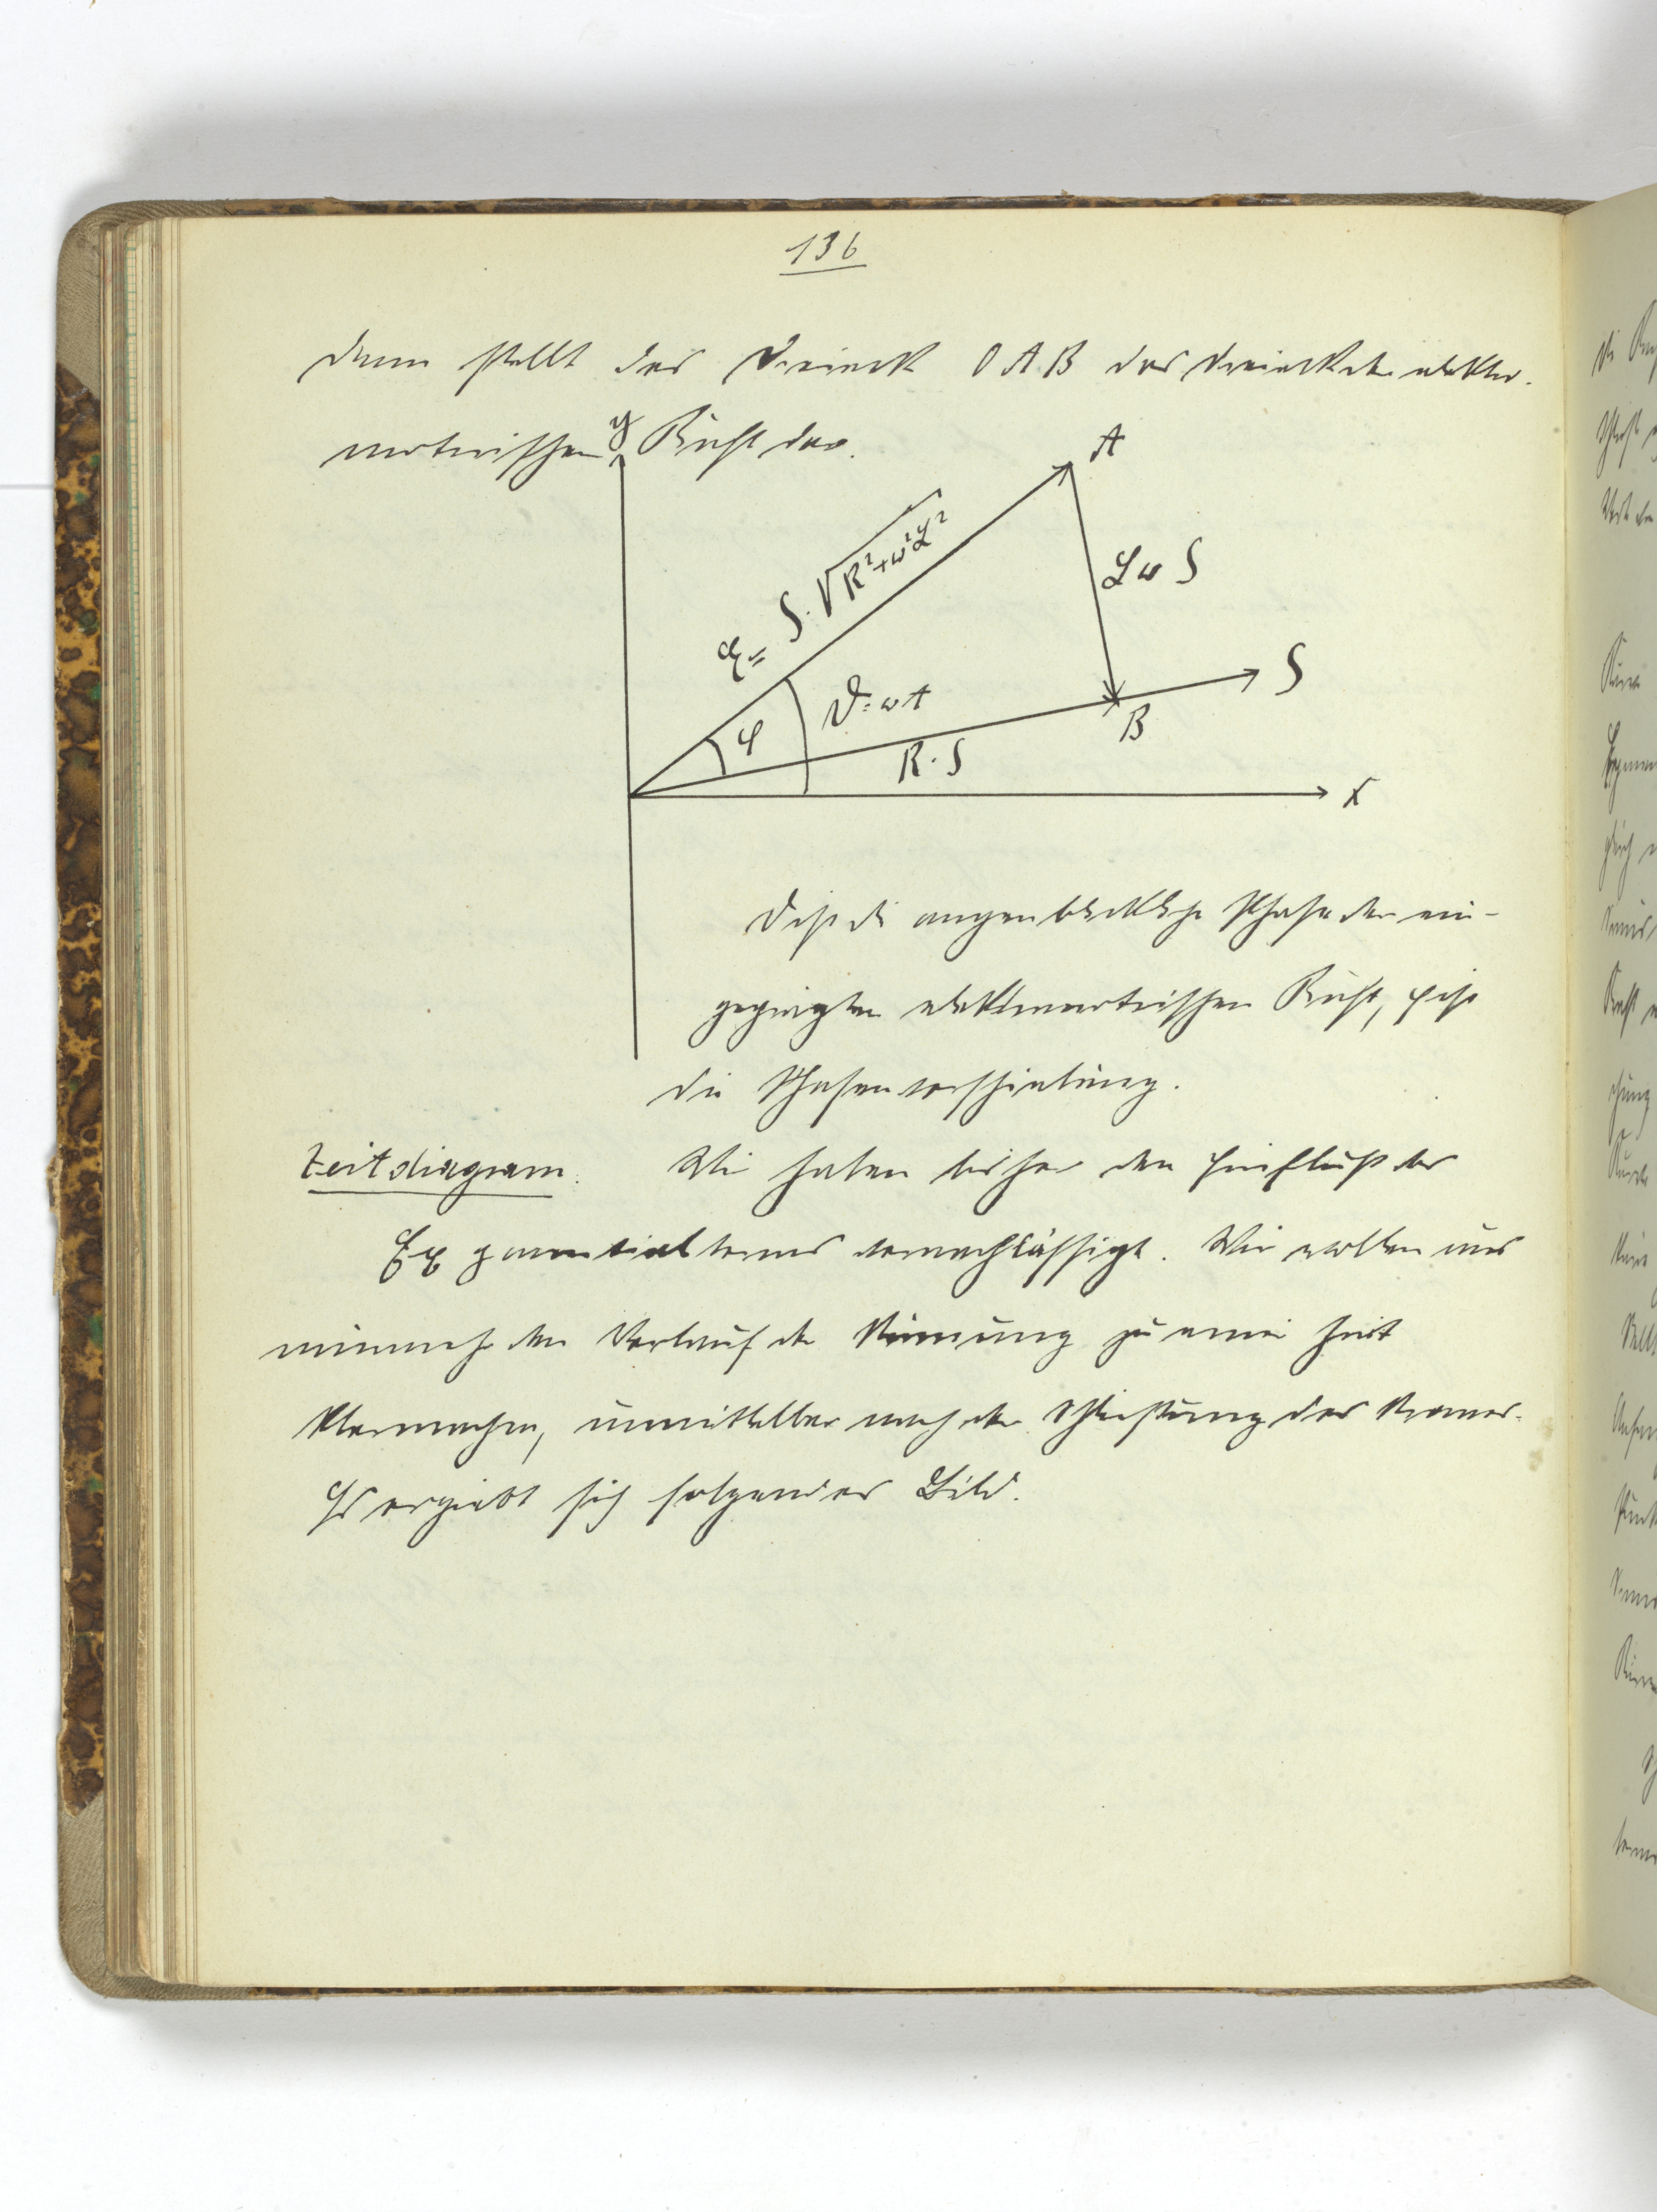 136
dann stellt das Dreieck OAB das Dreieck der elektro-
motorischen Kraft dar.
y
A
E = J·√R²+ω²L²
Lω J
J
ϑ=ωt
φ
B
R·J
x
ϑ ist die augenblickliche Phase der ein-
geprägten elektromotorischen Kraft, φ ist
die Phasenverschiebung.
Zeitdiagram. Wir haben bisher den Einfluß des
Exponentialterms vernachlässigt. Wir wollen uns
nunmehr den Verlauf der zu einer Zeit
klarmachen, unmittelbar nach der Schließung des Stromes.
Es ergiebt sich folgendes Bild.